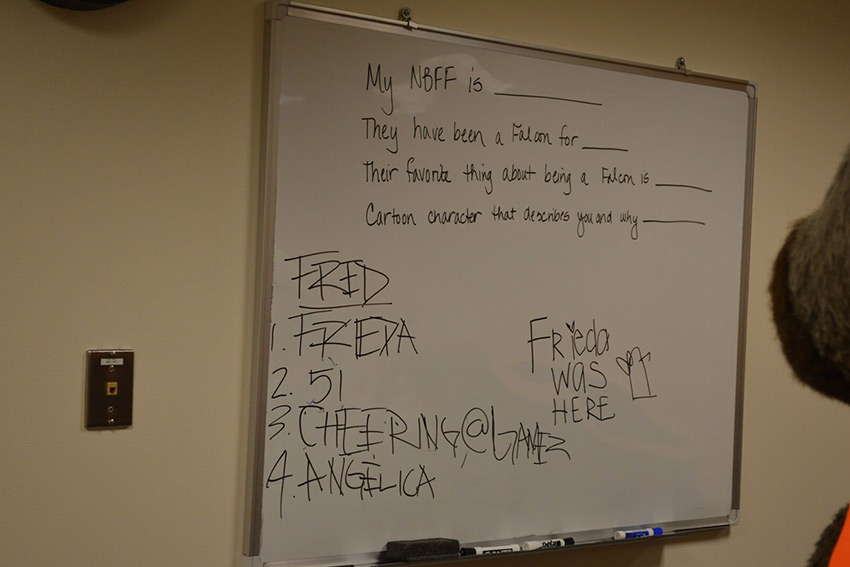 My NBFF is
They have been a Falcon for
Their favorite thing about being a Falcon is
Cartoon character that describes you and why
FRED
1. FRIEDA
2. 51
3. CHEERING @ GAMEZ
4. ANGELICA
Frieda
WAS
HERE